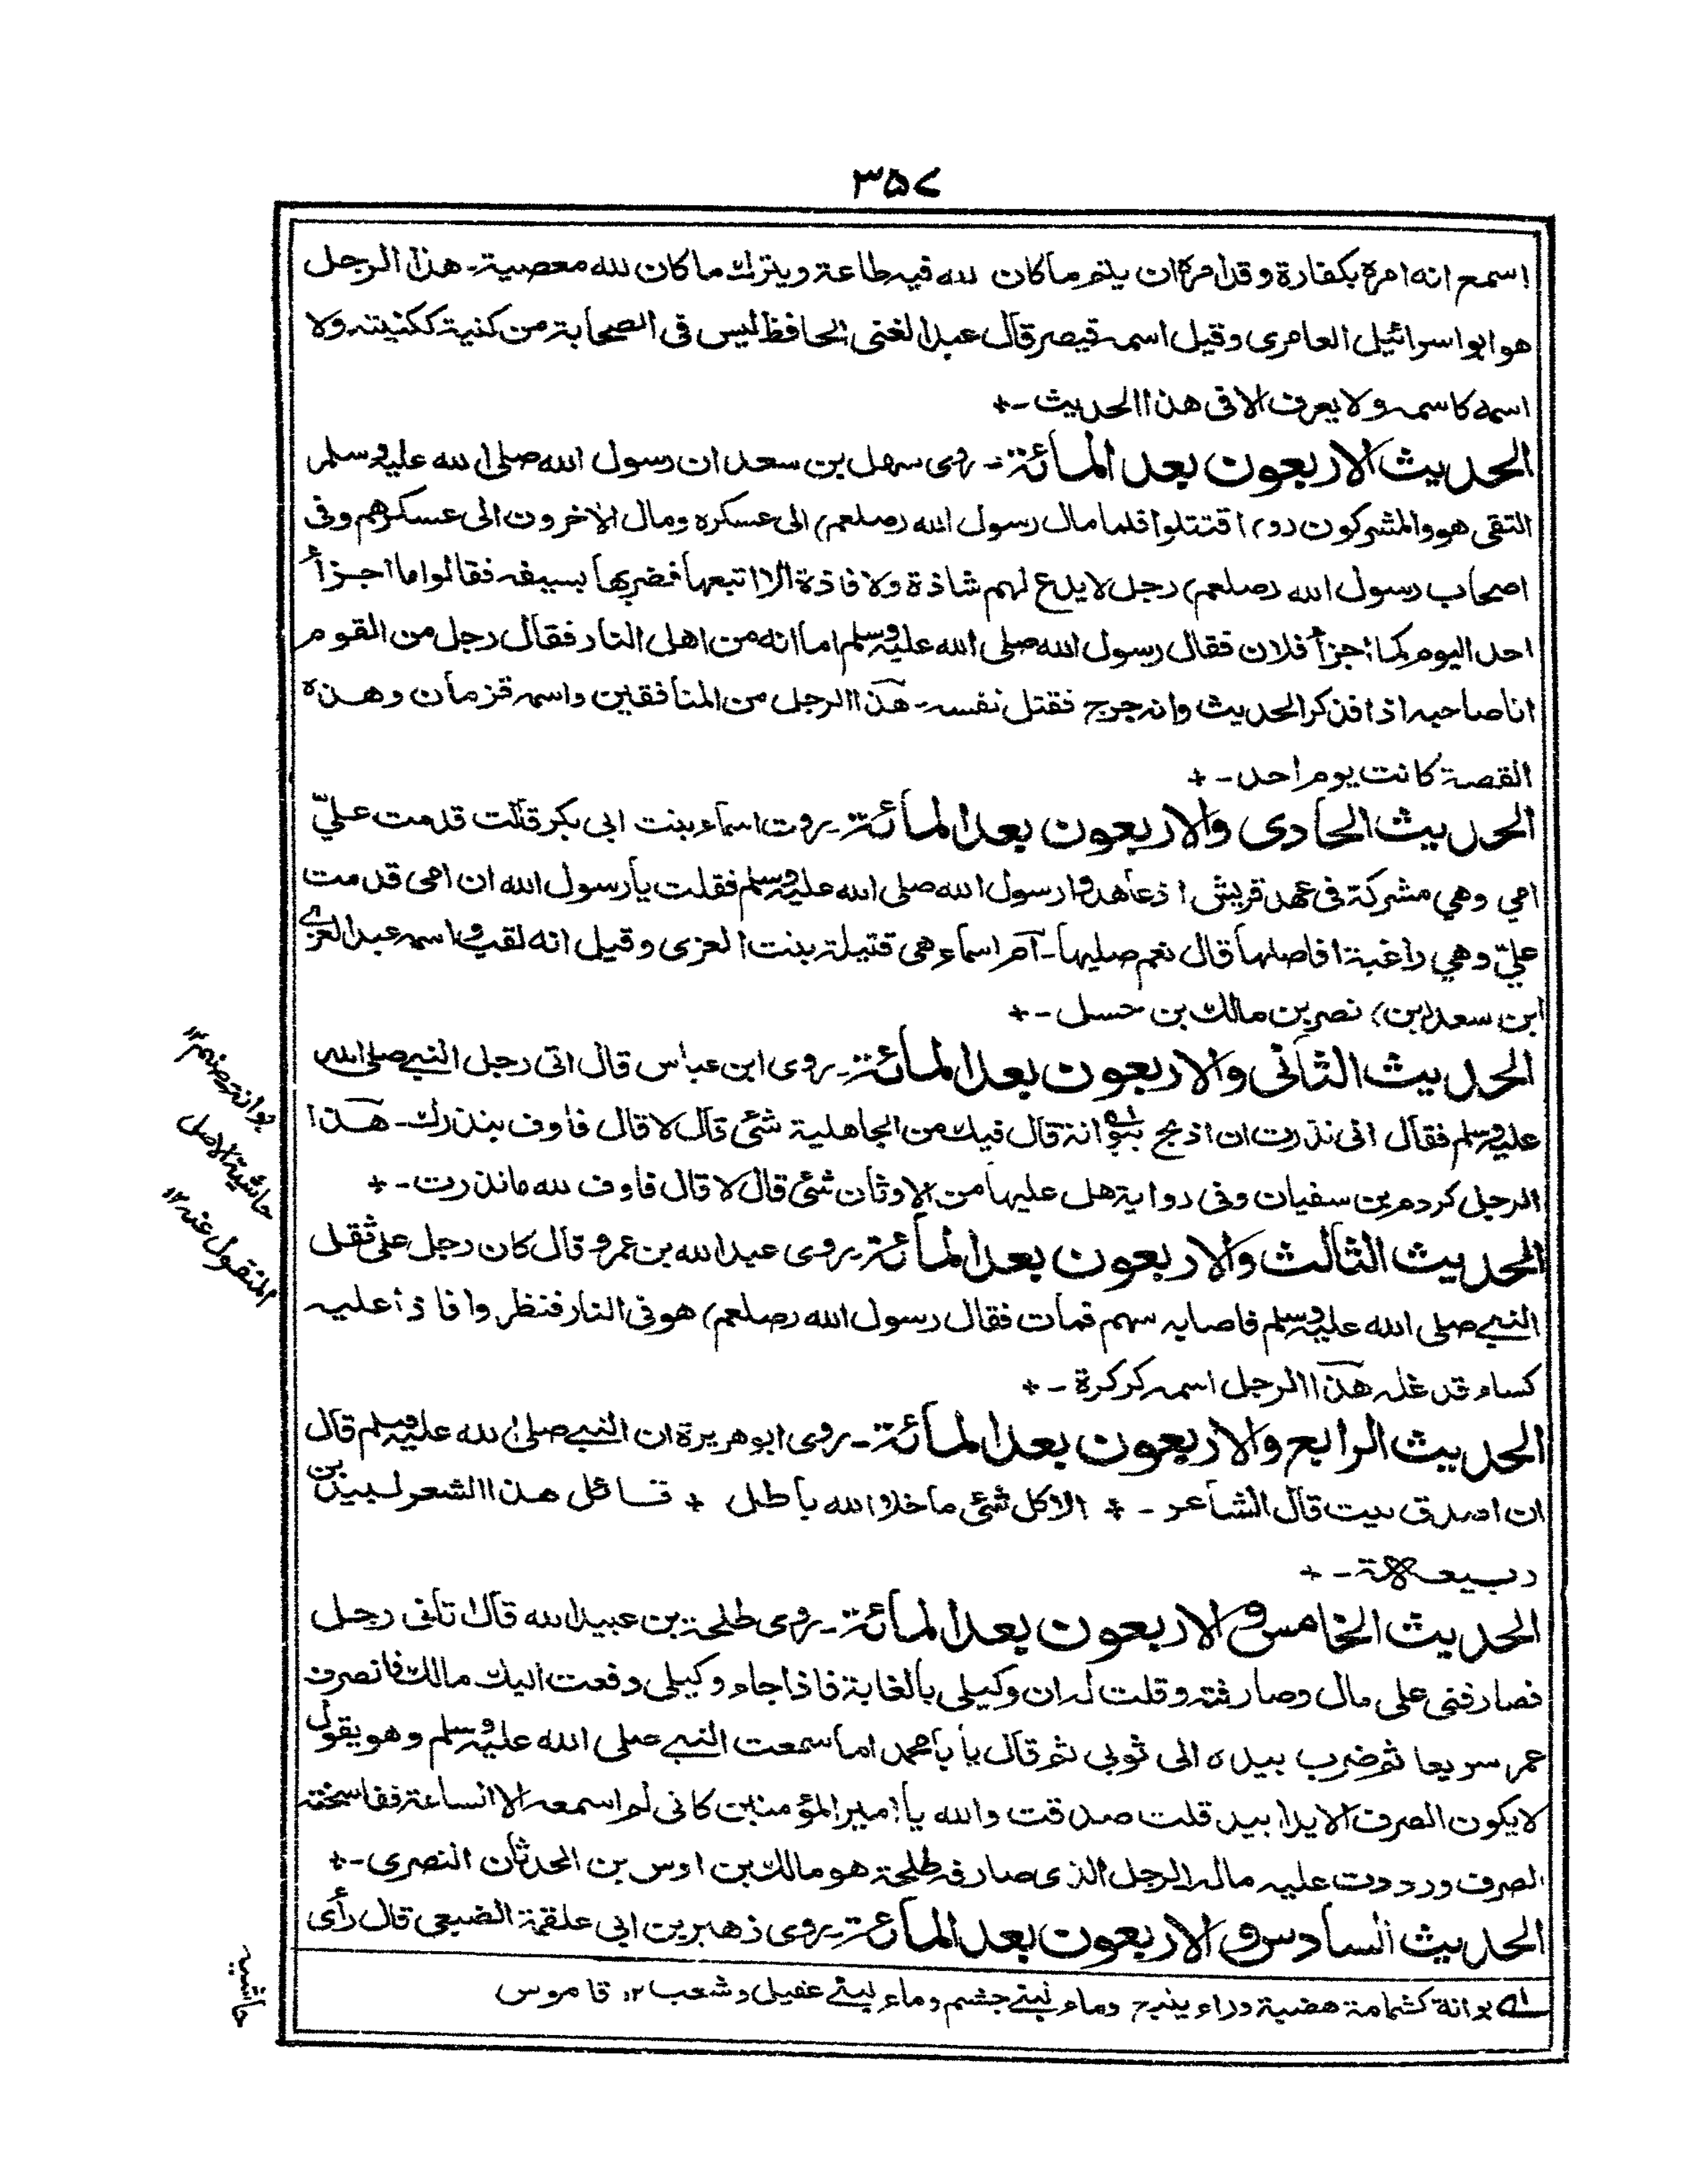 ۳۵۷
اسمع انه امره بكفارة وقد امره ان يتم ما كان لله فيه طاعة ويترك ما كان لله معصية۔ هذا الرجل
هو ابو اسرائيل العامري وقيل اسمه قيصر قال عبد الغني الحافظ ليس في الصحابة من كنية ككنيته ولا
اسمه كاسمه ولا يعرف الا في هذا الحديث ۔+
الحديث الاربعون بعد المائة۔ روى سهل بن سعد ان رسول الله صلى الله عليه وسلم
التقى هو والمشركون (و) اقتتلوا فلما مال رسول الله (صلعم) الى عسكره ومال الاخرون الى عسكرهم وفي
اصحاب رسول الله (صلعم) رجل لا يدع لهم شاذة ولا فاذة الا اتبعها فضربها بسيفه فقالوا ما اجزأ
احد اليوم كما اجزأ فلان فقال رسول الله صلى الله عليه وسلم اما انه من اهل النار فقال رجل من القوم
انا صاحبه اذا فذكر الحديث وانه جرح فقتل نفسه۔ هذا الرجل من المنافقين واسمه قزمان وهذه
القصة كانت يوم احد ۔+
الحديث الحادي والاربعون بعد المائة۔ روت اسماء بنت ابي بكر قالت قدمت عليّ
امي وهي مشركة في عهد قريش اذ عاهدوا رسول الله صلى الله عليه وسلم فقلت يا رسول الله ان امي قدمت
عليّ وهي راغبة افاصلها قال نعم صليها۔ ام اسماء هي قتيلة بنت العزى وقيل انه لقب واسمه عبد العزے
ابن سعد (بن) نصر بن مالك بن حسل ۔+
الحديث الثاني والاربعون بعد المائة۔ روى ابن عباس قال اتى رجل النبي صلى الله
عليه وسلم فقال اني نذرت ان اذبح ببوانة قال فيك من الجاهلية شئ قال لا قال فاوف بنذرك۔ هذا
الرجل كردم بن سفيان وفي رواية هل عليها من الاوثان شئ قال لا قال فاوف لله ما نذرت ۔+
الحديث الثالث والاربعون بعد المائة۔ روى عبد الله بن عمرو قال كان رجل على ثقل
النبي صلى الله عليه وسلم فاصابه سهم فمات فقال رسول الله (صلعم) هو في النار فنظروا فاذا عليه
كساء قد غله هذا الرجل اسمه كركرة ۔+
الحديث الرابع والاربعون بعد المائة۔ روى ابو هريرة ان النبي صلى الله عليه وسلم قال
ان اصدق بيت قال الشاعر ۔ + الا كل شئ ما خلا الله باطل + قائل هذا الشعر لبيد بن
ربيعة ۔+
الحديث الخامس والاربعون بعد المائة۔ روى طلحة بن عبيد الله قال اتاني رجل
فصارفني على مال وصارفته وقلت له ان وكيلي بالغابة فاذا جاء وكيلي دفعت اليك مالك فانصرف
عمر سريعا ثم ضرب بيده الى ثوبي ثم قال يا با محمد اما سمعت النبي صلى الله عليه وسلم وهو يقول
لا يكون الصرف الا يدا بيد قلت صدقت والله يا امير المؤمنين كاني لم اسمعه الا الساعة ففاسخته
الصرف ورددت عليه ماله الرجل الذي صارفه طلحة هو مالك بن اوس بن الحدثان النصري ۔+
الحديث السادس والاربعون بعد المائة۔ روى زهير بن ابي علقمة الضبعي قال رأى
لـه بوانة كثمامة هضبة وراء ينبع وماء لبني جشم وماء لبني عقيل وشعب ۱۲ قاموس
بوانة بضم ۱۲
حاشية الاصل
المنقول عنه ۱۲
حاشيه